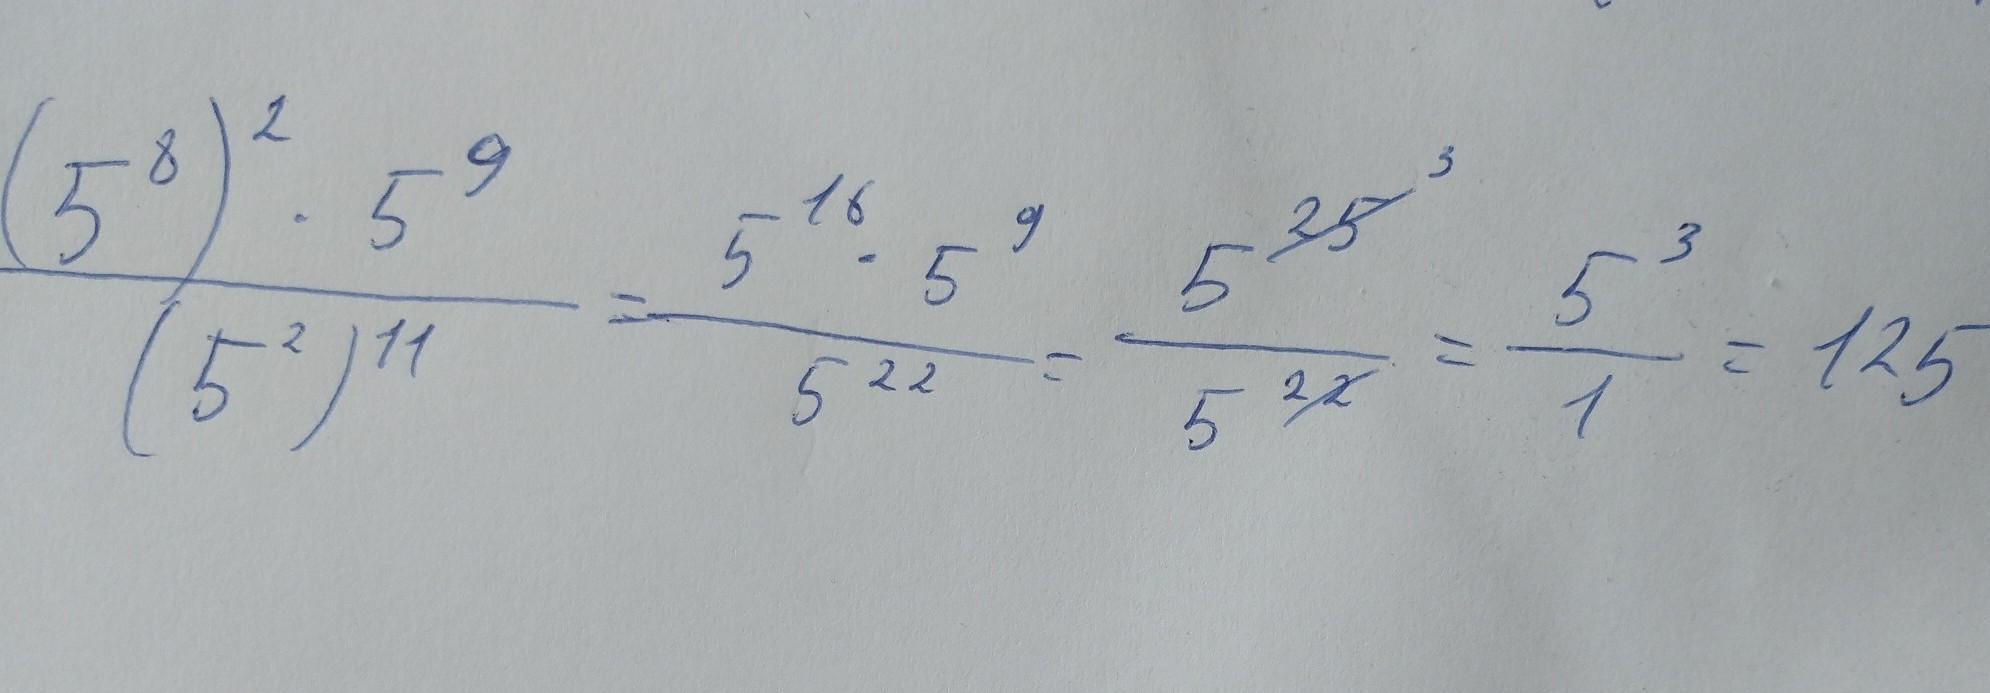 (5⁸)² · 5⁹ / (5²)¹¹ = 5¹⁶ · 5⁹ / 5²² = 5²⁵ ³ / 5²² = 5³ / 1 = 125